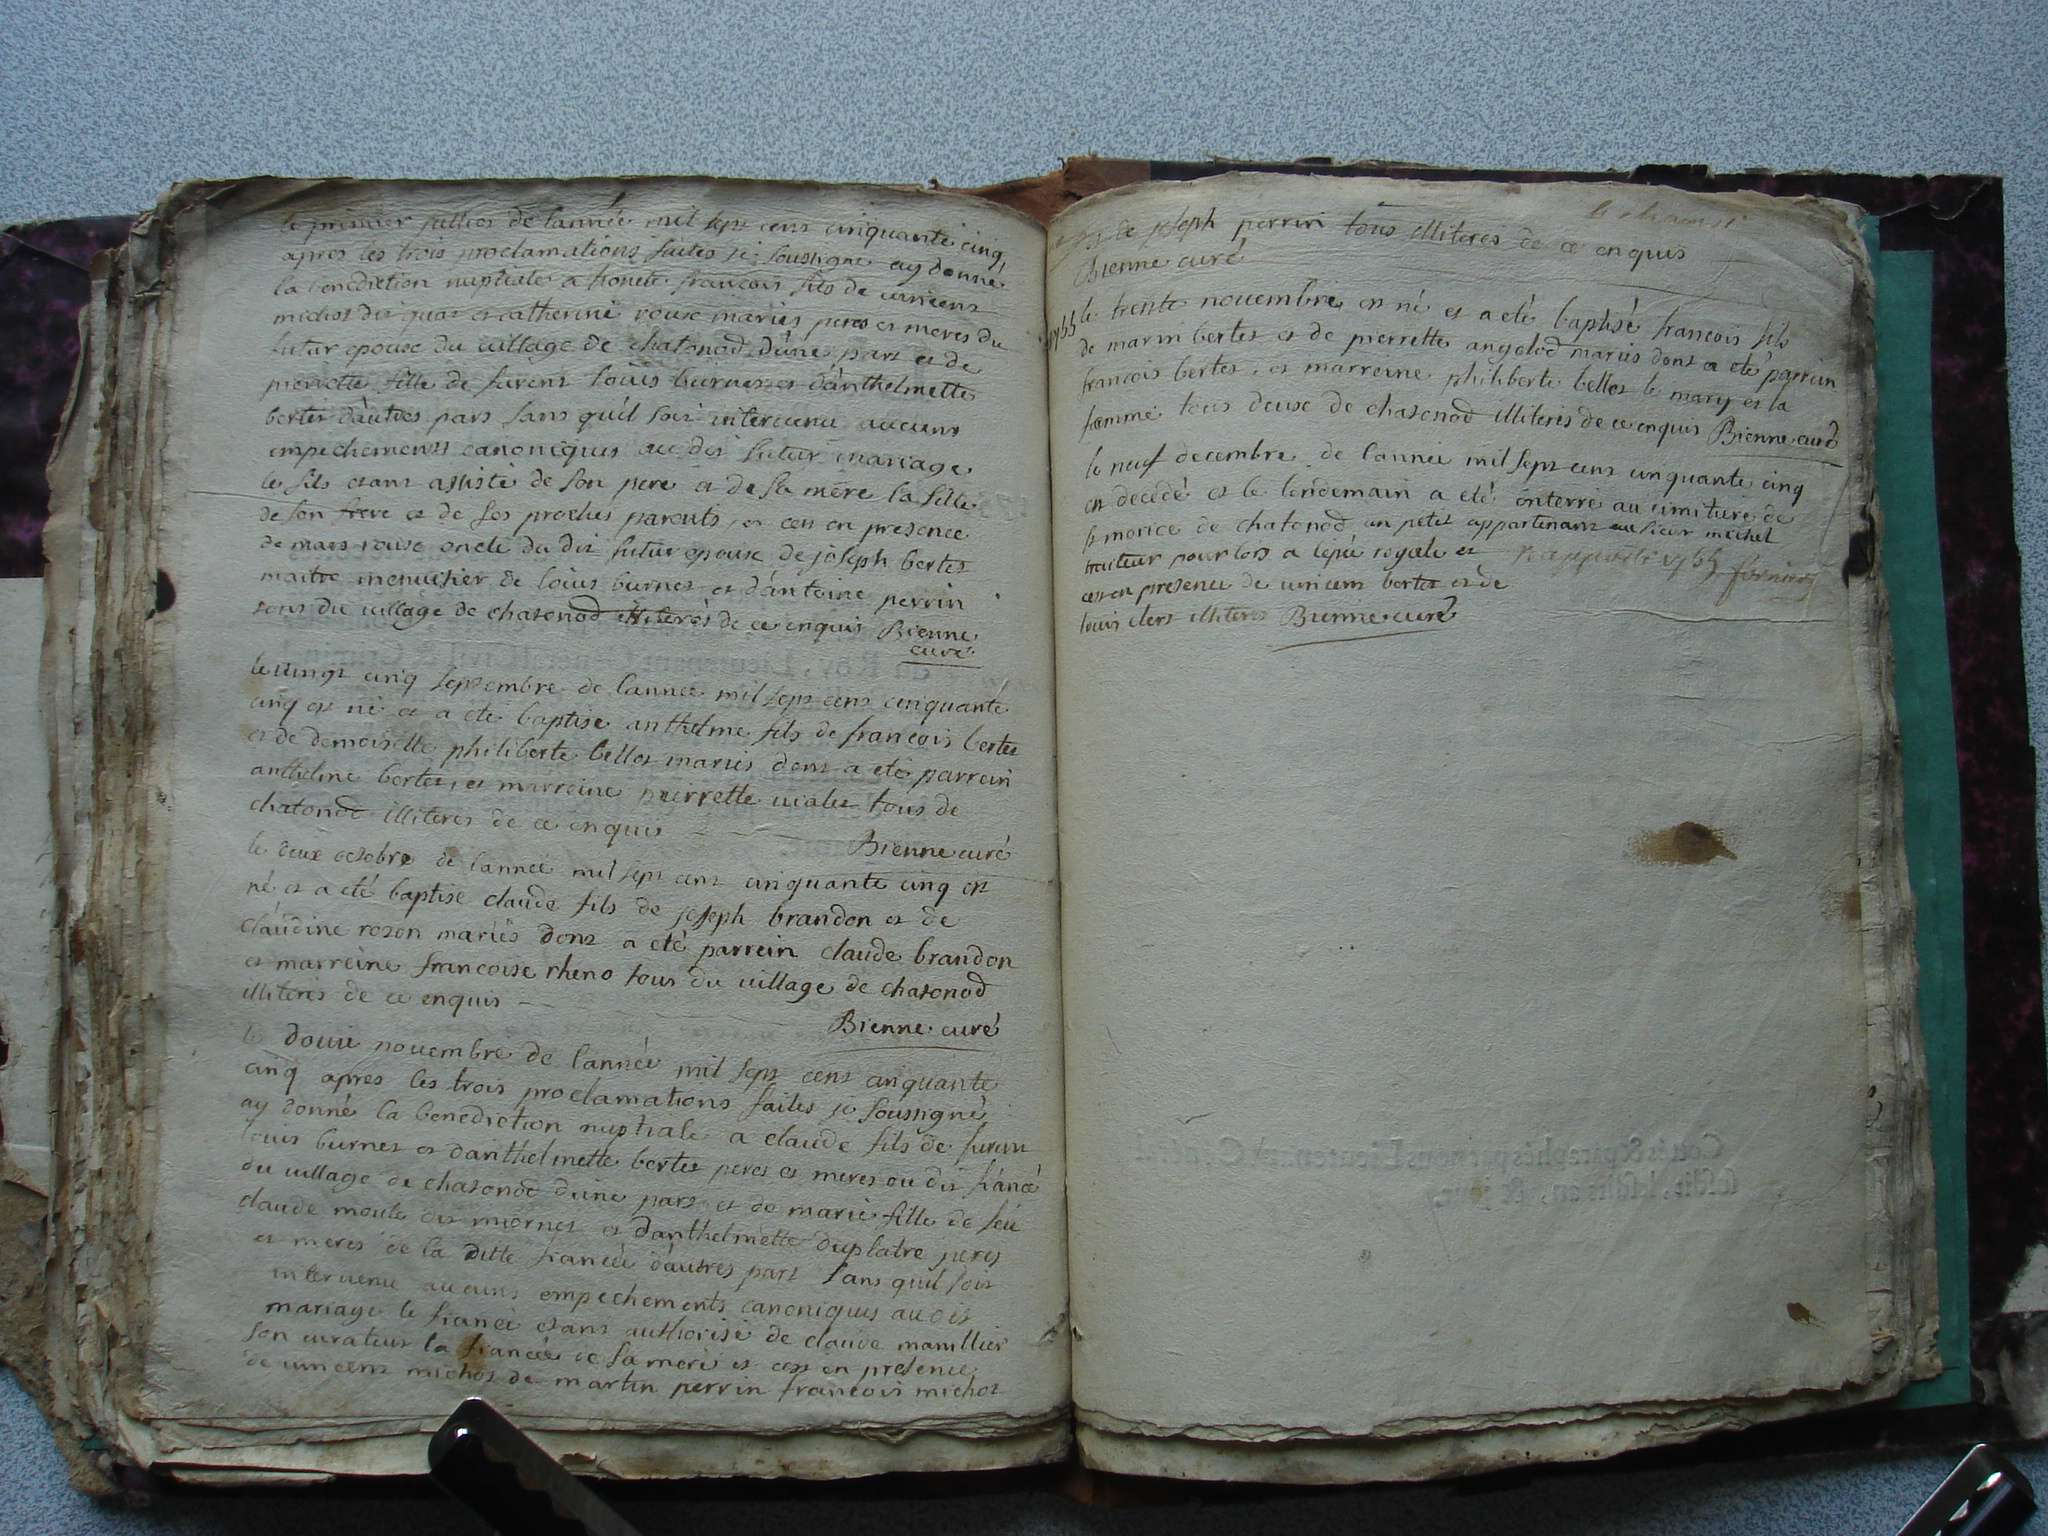 le premier jullies de lannée mil sept cens cinquante cinq
apres les trois proclamations faites je soussigné ay donné
la benediction nuptiale a honete francois fils de vincens
michos dit quat et catherine rouse mariés peres et meres du
futur epouse du village de chatonod dùne part et de
pierrette fille de furens loüis burnes et dánthelmette
bertes dàutres pars sans quíl soit intervenu aucuns
empechements canoniques au dit futur mariage
le fils etans assisté de son pere et de sa mere la fille
de son frere et de ses proches parents, et ces en presence
de mars rouse oncle du dit futur epouse de joseph bertes
maitre menuisier de loüis burnes et dántoine perrin
tous du village de chatonod illiterés de ce enquis Bienne
curé
le vingt cinq septembre de lannee mil sept cens cinquante
cinq est né et a été baptise anthelme fils de francois bertes
et de demoiselle philiberte bellos mariés dons a eté parrein
anthelme bertes, et marreine pierrette vialet tous de
chatonod illiteres de ce enquis
Bienne curé
le deux octobre de lannee mil sept cens cinquante cinq est
né et a eté baptise claude fils de joseph brandon et de
claudine rozon mariés dont a eté parrein claude brandon
et marreine francoise rheno tous du village de chatonod
illiteres de ce enquis
Bienne curé
le douze novembre de lannée mil sept cens cinquante
cinq apres les trois proclamations faites je soussigné
ay donné la benediction nuptiale a claude fils de furens
louis burnes et danthelmette bertes peres et meres du dit fiancé
du village de chatonod dune part et de marie fille de feu
claude moute dit miornet et danthelmette duplatre peres
et meres de la ditte fiancée dáutres part sans quil soit
intervenu aucuns empechements canoniques au dit
mariage le fiancé etans authorisé de claude manillier
son curateur la fiancée de sa mere et ces en presence
de vincens michos de martin perrin francois michos
et de joseph perrin tous illiteres de ce enquis
Bienne curé
1755 le trente novembre est né et a eté baptisé francois fils
de marin bertes et de pierrette angelod mariés dont a eté parrain
francois bertes, et marreine philiberte bellos le mary et la
fœmme tous deux de chatonod illiterés de ce enquis Bienne curé
le neuf decembre de lannee mil sept cens cinquante cinq
est decedé et le lendemain a eté enterré au cimitiere de
st morice de chatonod un petit appartenant au sieur michel
traiteur pour lors a lépée royale et
ces en presence de vincens bertes et de
louis clerc illiteres Bienne curé